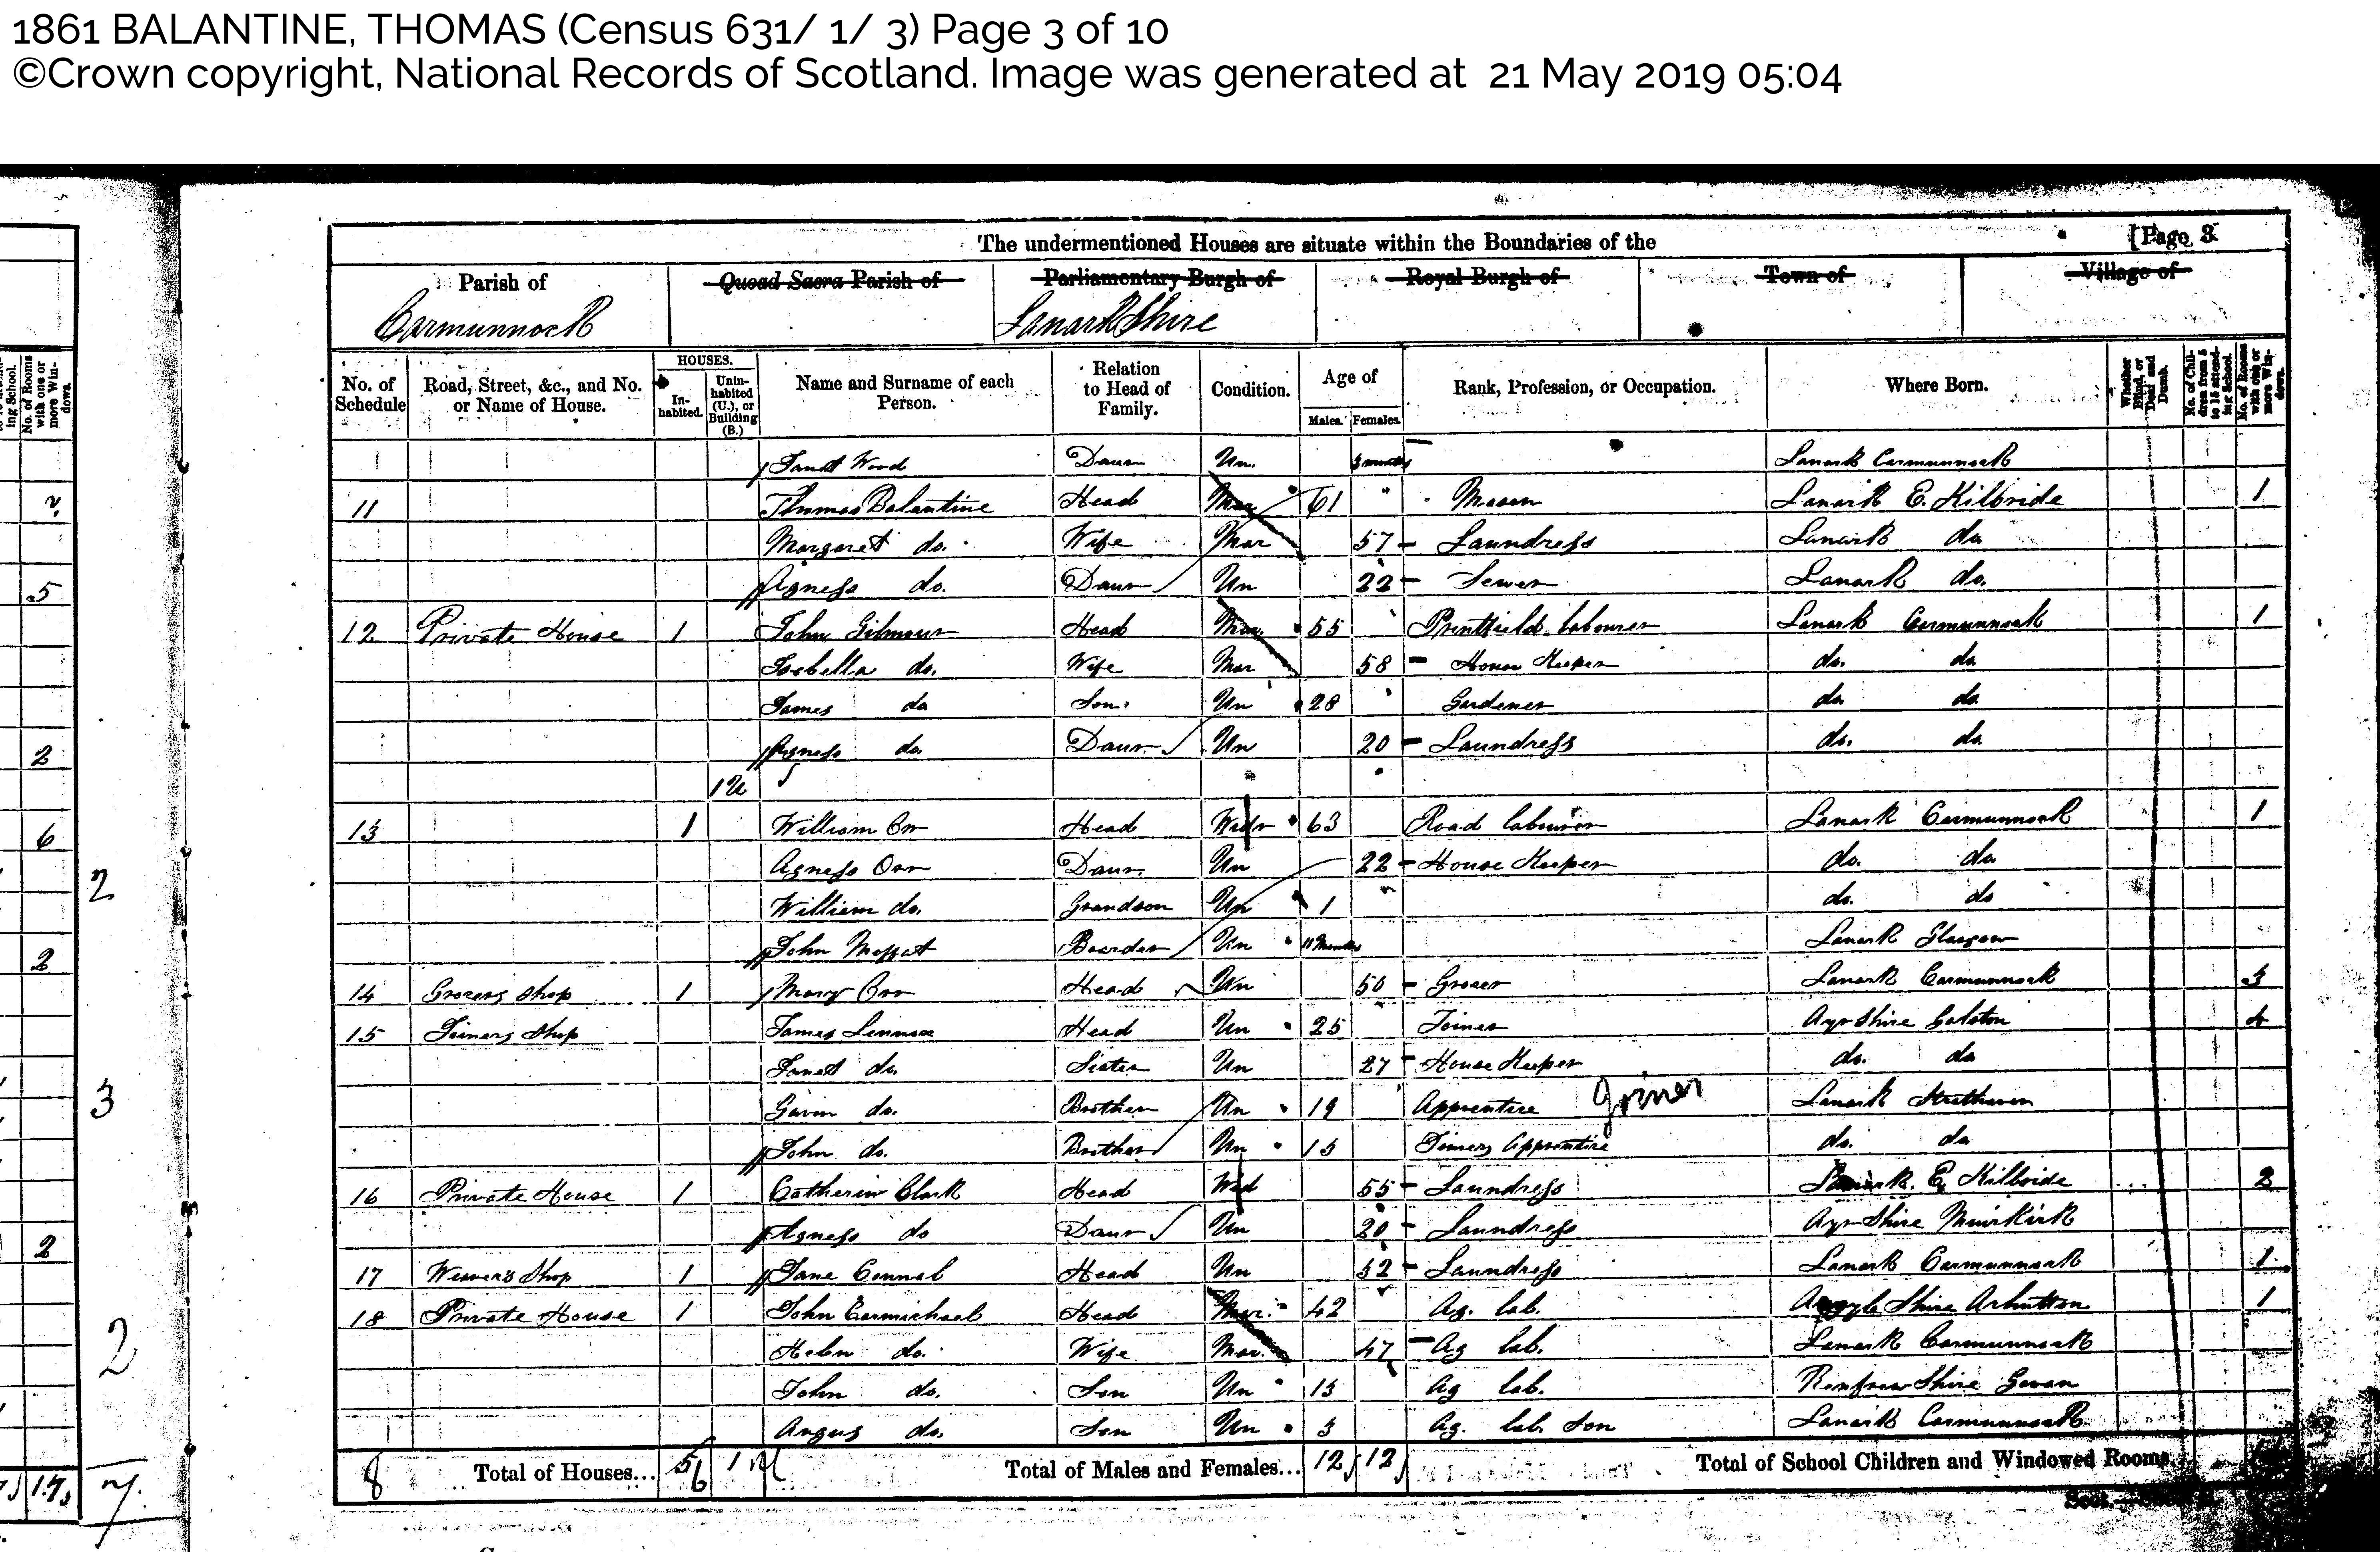 1861 BALANTINE, THOMAS (Census 631/ 1/ 3) Page 3 of 10
©Crown copyright, National Records of Scotland. Image was generated at 21 May 2019 05:04
The undermentioned Houses are situate within the Boundaries of the [Page 3
Parish of Quoad Sacra Parish of Parliamentary Burgh of Royal Burgh of Town of Village of
Carmunnock LanarkShire
No. of Schedule Road, Street, &c., and No. or Name of House. HOUSES. In-habited. Unin-habited (U.), or Building (B.) Name and Surname of each Person. Relation to Head of Family. Condition. Age of Males. Females. Rank, Profession, or Occupation. Where Born. Whether Blind, or Deaf and Dumb. No. of Chil-dren from 5 to 15 attend-ing School. No. of Rooms with one or more Win-dows.
Janet Wood Daur Un. 3 months Lanark Carmunnock
11 Thomas Balantine Head Mar 61 Mason Lanark E. Kilbride 1
Margaret do. Wife Mar 57 Laundress Lanark do
Agness do. Daur Un 22 Sewer Lanark do.
12 Private House 1 John Gilmour Head Mar 55 Printfield labourer Lanark Carmunnock 1
Isabella do. Wife Mar 58 House Keeper do. do
James do Son Un 28 Gardener do do
Agness do. Daur Un 20 Laundress do. do.
1 U
13 1 William Orr Head Widr 63 Road labourer Lanark Carmunnock 1
Agness Orr Daur. Un 22 House Keeper do. do.
William do. Grandson Un 1 do. do
John Moffat Boarder Un 11 Months Lanark Glasgow
14 Grocers Shop 1 Mary Orr Head Un 50 Grocer Lanark Carmunnock 3
15 Joiners Shop James Lennox Head Un 25 Joiner AyrShire Galston 4
Janet do. Sister Un 27 House Keeper do. do
Gavin do. Brother Un 19 Apprentice Joiner Lanark Strathaven
John do. Brother Un 15 Joiners Apprentice do. do
16 Private House 1 Catherin Clark Head Wid 55 Laundress Lanark E. Kilbride 2
Agness do Daur Un 20 Laundress AyrShire Muirkirk
17 Weaver's Shop 1 Jane Connal Head Un 52 Laundress Lanark Carmunnock 1
18 Private House 1 John Carmichael Head Mar. 42 Ag. lab. ArgyleShire 1
Helen do. Wife Mar. 47 Ag lab. Lanark Carmunnock
John do. Son Un 13 Ag lab. RenfrewShire Govan
Angus do. Son Un 3 Ag. lab Son Lanark Carmunnock
8 Total of Houses... 5 6 1 U Total of Males and Females... 12 12 Total of School Children and Windowed Rooms